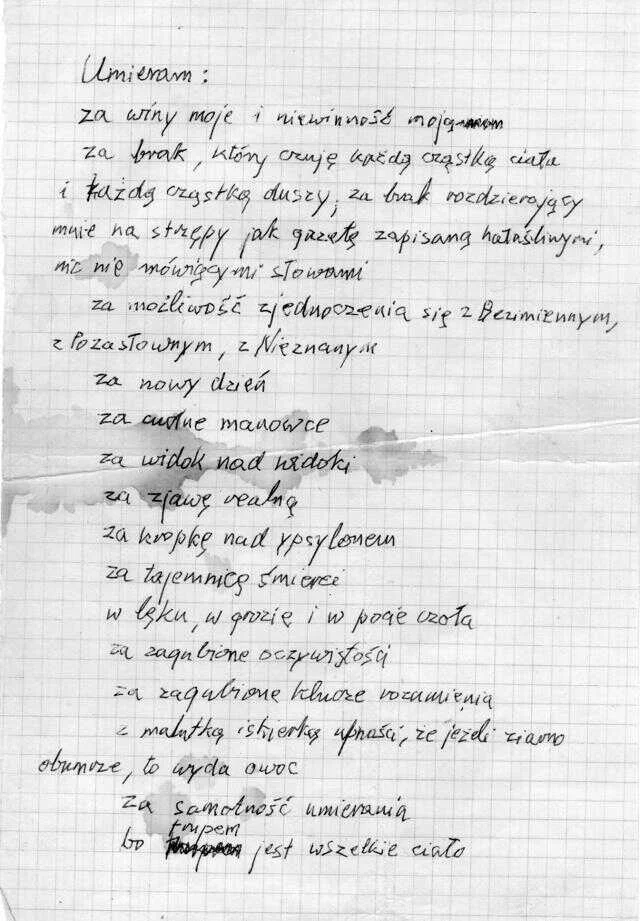 Umieram:
za winy moje i niewinność moją
za brak, który czuję każdą cząstką ciała
i każdą cząstką duszy, za brak rozdzierający
mnie na strzępy jak gazetę zapisaną hałaśliwymi,
nic nie mówiącymi słowami
za możliwość zjednoczenia się z Bezimiennym,
z Pozasłownym, z Nieznanym
za nowy dzień
za cudne manowce
za widok nad widoki
za zjawę realną
za kropkę nad ypsylonem
za tajemnicę śmierci
w lęku, w grozie i w pocie czoła
za zagubione oczywistości
za zagubione klucze rozumienia
z malutką iskierką ufności, że jeżeli ziarno
obumrze, to wyda owoc
za samotność umierania
bo trupem jest wszelkie ciało